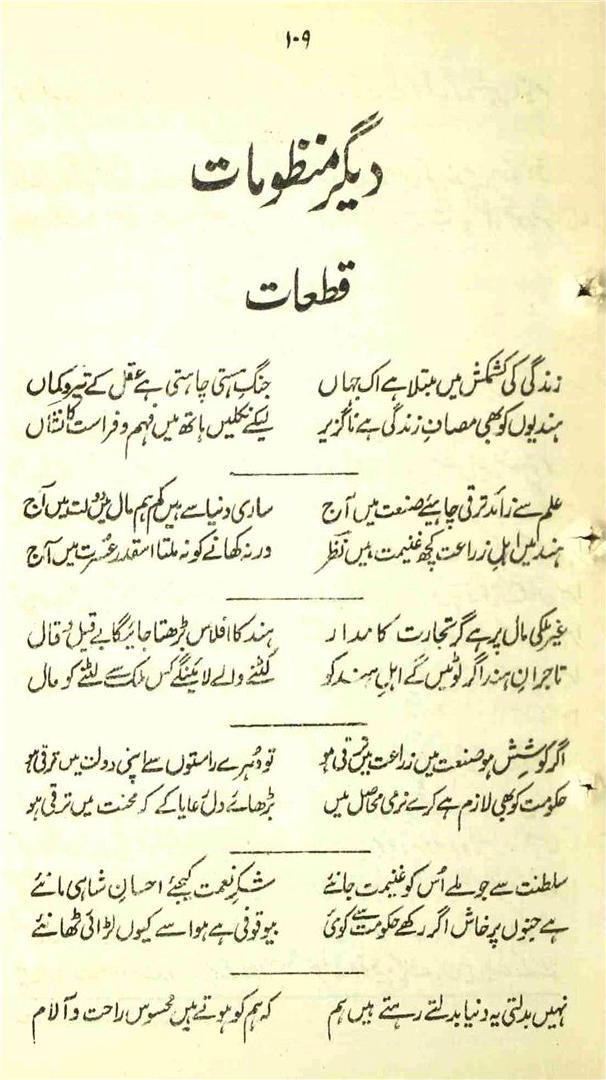 ۱۰۹
دیگر منظومات
قطعات
زندگی کی کشمکش میں مبتلا ہے اک جہاں جنگِ ہستی چاہتی ہے عقل کے تیر و کماں
ہندیوں کو بھی مصافِ زندگی ہے ناگزیر لیکے نکلیں ہاتھ میں فہم و فراست کا نشاں
علم سے زائد ترقی چاہیئے صنعت میں آج ساری دنیا سے ہیں کم ہم مال میں دولت میں آج
ہند میں اہلِ زراعت کچھ غنیمت ہیں نظر ورنہ کھانے کو نہ ملتا اسقدر عُسرت میں آج
غیر ملکی مال پر ہے گر تجارت کا مدار ہند کا افلاس بڑھتا جائیگا بے قیل و قال
تاجرانِ ہند اگر لوٹیں گے اہلِ ہند کو کٹنے والے لائینگے کس ملک سے لٹنے کو مال
اگر کوشش ہو صنعت میں زراعت میں ترقی ہو تو دُہرے راستوں سے اپنی دولت میں ترقی ہو
حکومت کو بھی لازم ہے کرے نرمی محاصل میں بڑھائے دل رعایا کے کہ محنت میں ترقی ہو
سلطنت سے جو ملے اُس کو غنیمت جانئے شکرِ نعمت کیجئے احسانِ شاہی مانئے
ہے جنوں پرخاش اگر رکھے حکومت سے کوئی بیوقوفی ہے ہوا سے کیوں لڑائی ٹھانئے
نہیں بدلتی یہ دنیا بدلتے رہتے ہیں ہم کہ ہم کو ہوتے ہیں محسوس راحت و آلام